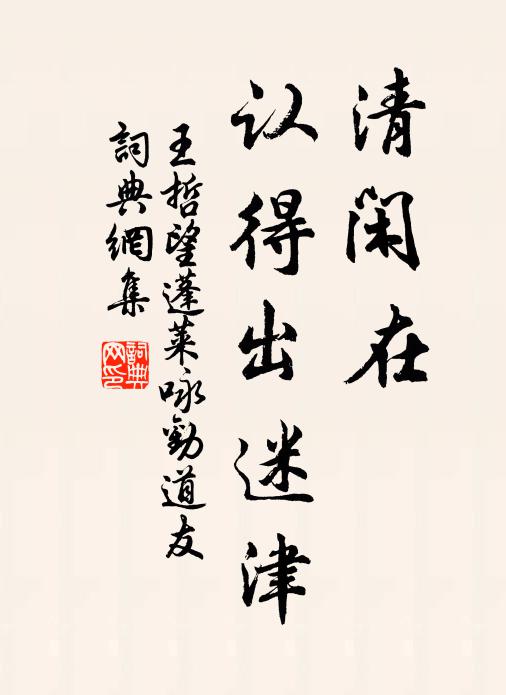 清闲在
认得出迷津
王哲望蓬莱咏勸道友
詞典網集
詞典
网印